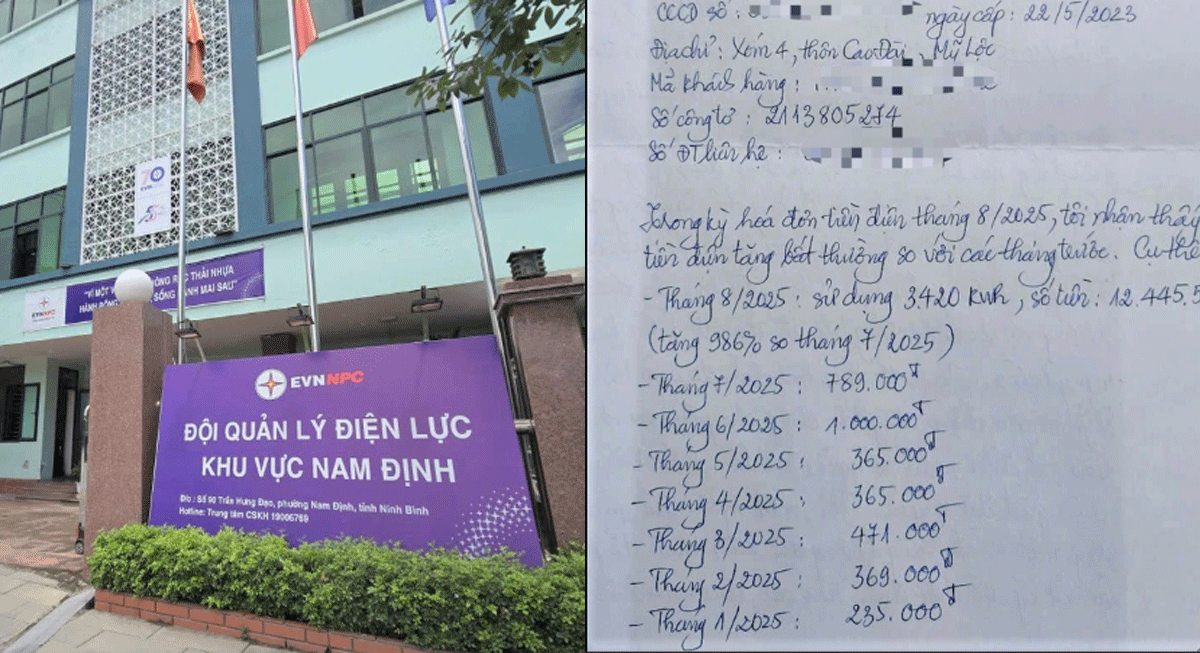 70
EVN
"VÌ MỘT
NG RÁC THẢI NHỰA
HÀNH ĐỘNG
SỐNG
NH MAI SAU"
EVNNPC
EVNNPC
ĐỘI QUẢN LÝ ĐIỆN LỰC
KHU VỰC NAM ĐỊNH
Đ/c : Số 90 Trần Hưng Đạo, phường Nam Định, tỉnh Ninh Bình
Hotline: Trung tâm CSKH 19006769
CCCD số : ngày cấp : 22/5/2023
Địa chỉ : Xóm 4, thôn Cao Đài, Mỹ Lộc
Mã khách hàng :
Số công tơ : 2113805274
Số ĐT liên hệ :
Trong kỳ hoá đơn tiền điện tháng 8/2025, tôi nhận thấy
tiền điện tăng bất thường so với các tháng trước. Cụ thể
- Tháng 8/2025 : sử dụng 3420 kwh, số tiền : 12.445.5
(tăng 986% so tháng 7/2025)
- Tháng 7/2025 : 789.000đ
- Tháng 6/2025 : 1.000.000đ
- Tháng 5/2025 : 365.000đ
- Tháng 4/2025 : 365.000đ
- Tháng 3/2025 : 471.000đ
- Tháng 2/2025 : 369.000đ
- Tháng 1/2025 : 235.000đ